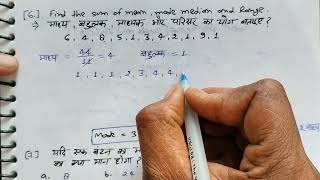 [6.] Find the sum of mean, mode median and Range.
→ माध्य बहुलक, माध्यक और परिसर का योग बताइए?
6, 4, 8, 5, 1, 3, 4, 2, 1, 9, 1
माध्य = 44/11 = 4 बहुलक = 1
1, 1, 1, 2, 3, 4, 4,
Mode = 3
[7.] यदि एक बंटन का
का मान होगा?
a. 8 b. 24